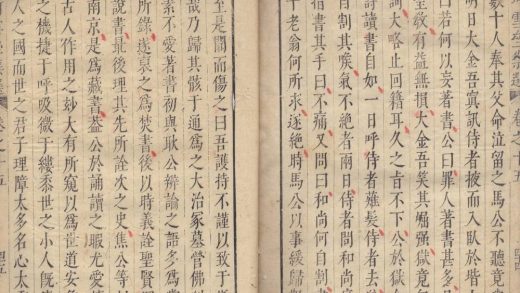 卷之十五
數十人奉其父命泣留之馬公不聽竟
明日大金吾寘訊侍者掖而入臥於堦
曰若何以妄著書公曰罪人著書甚多
至敎有益無損大金吾笑其崛强獄竟
詞大略止回籍耳久之旨不下公於獄
詩讀書自如一日呼侍者薙髮侍者去
自割其喉氣不絶者兩日侍者問和尚
書其手曰不痛又問曰和尚何自割
十老翁何所求遂絶時馬公以事緩歸
至是聞而傷之曰吾護持不謹以致于
哉乃歸其骸于通爲之大治冢墓營佛
素不愛著書初與耿公辯論之語多爲
所錄遂裒之爲焚書後以時義詮聖賢
說書㝡後理其先所詮次之史焦公等
南京是爲藏書葢公於誦讀之暇尤愛
古人作用之妙大有所窺以爲世道安
之機捷于呼吸微于縷黍世之小人旣
人之國而世之君子理障太多名心太
卷之十五